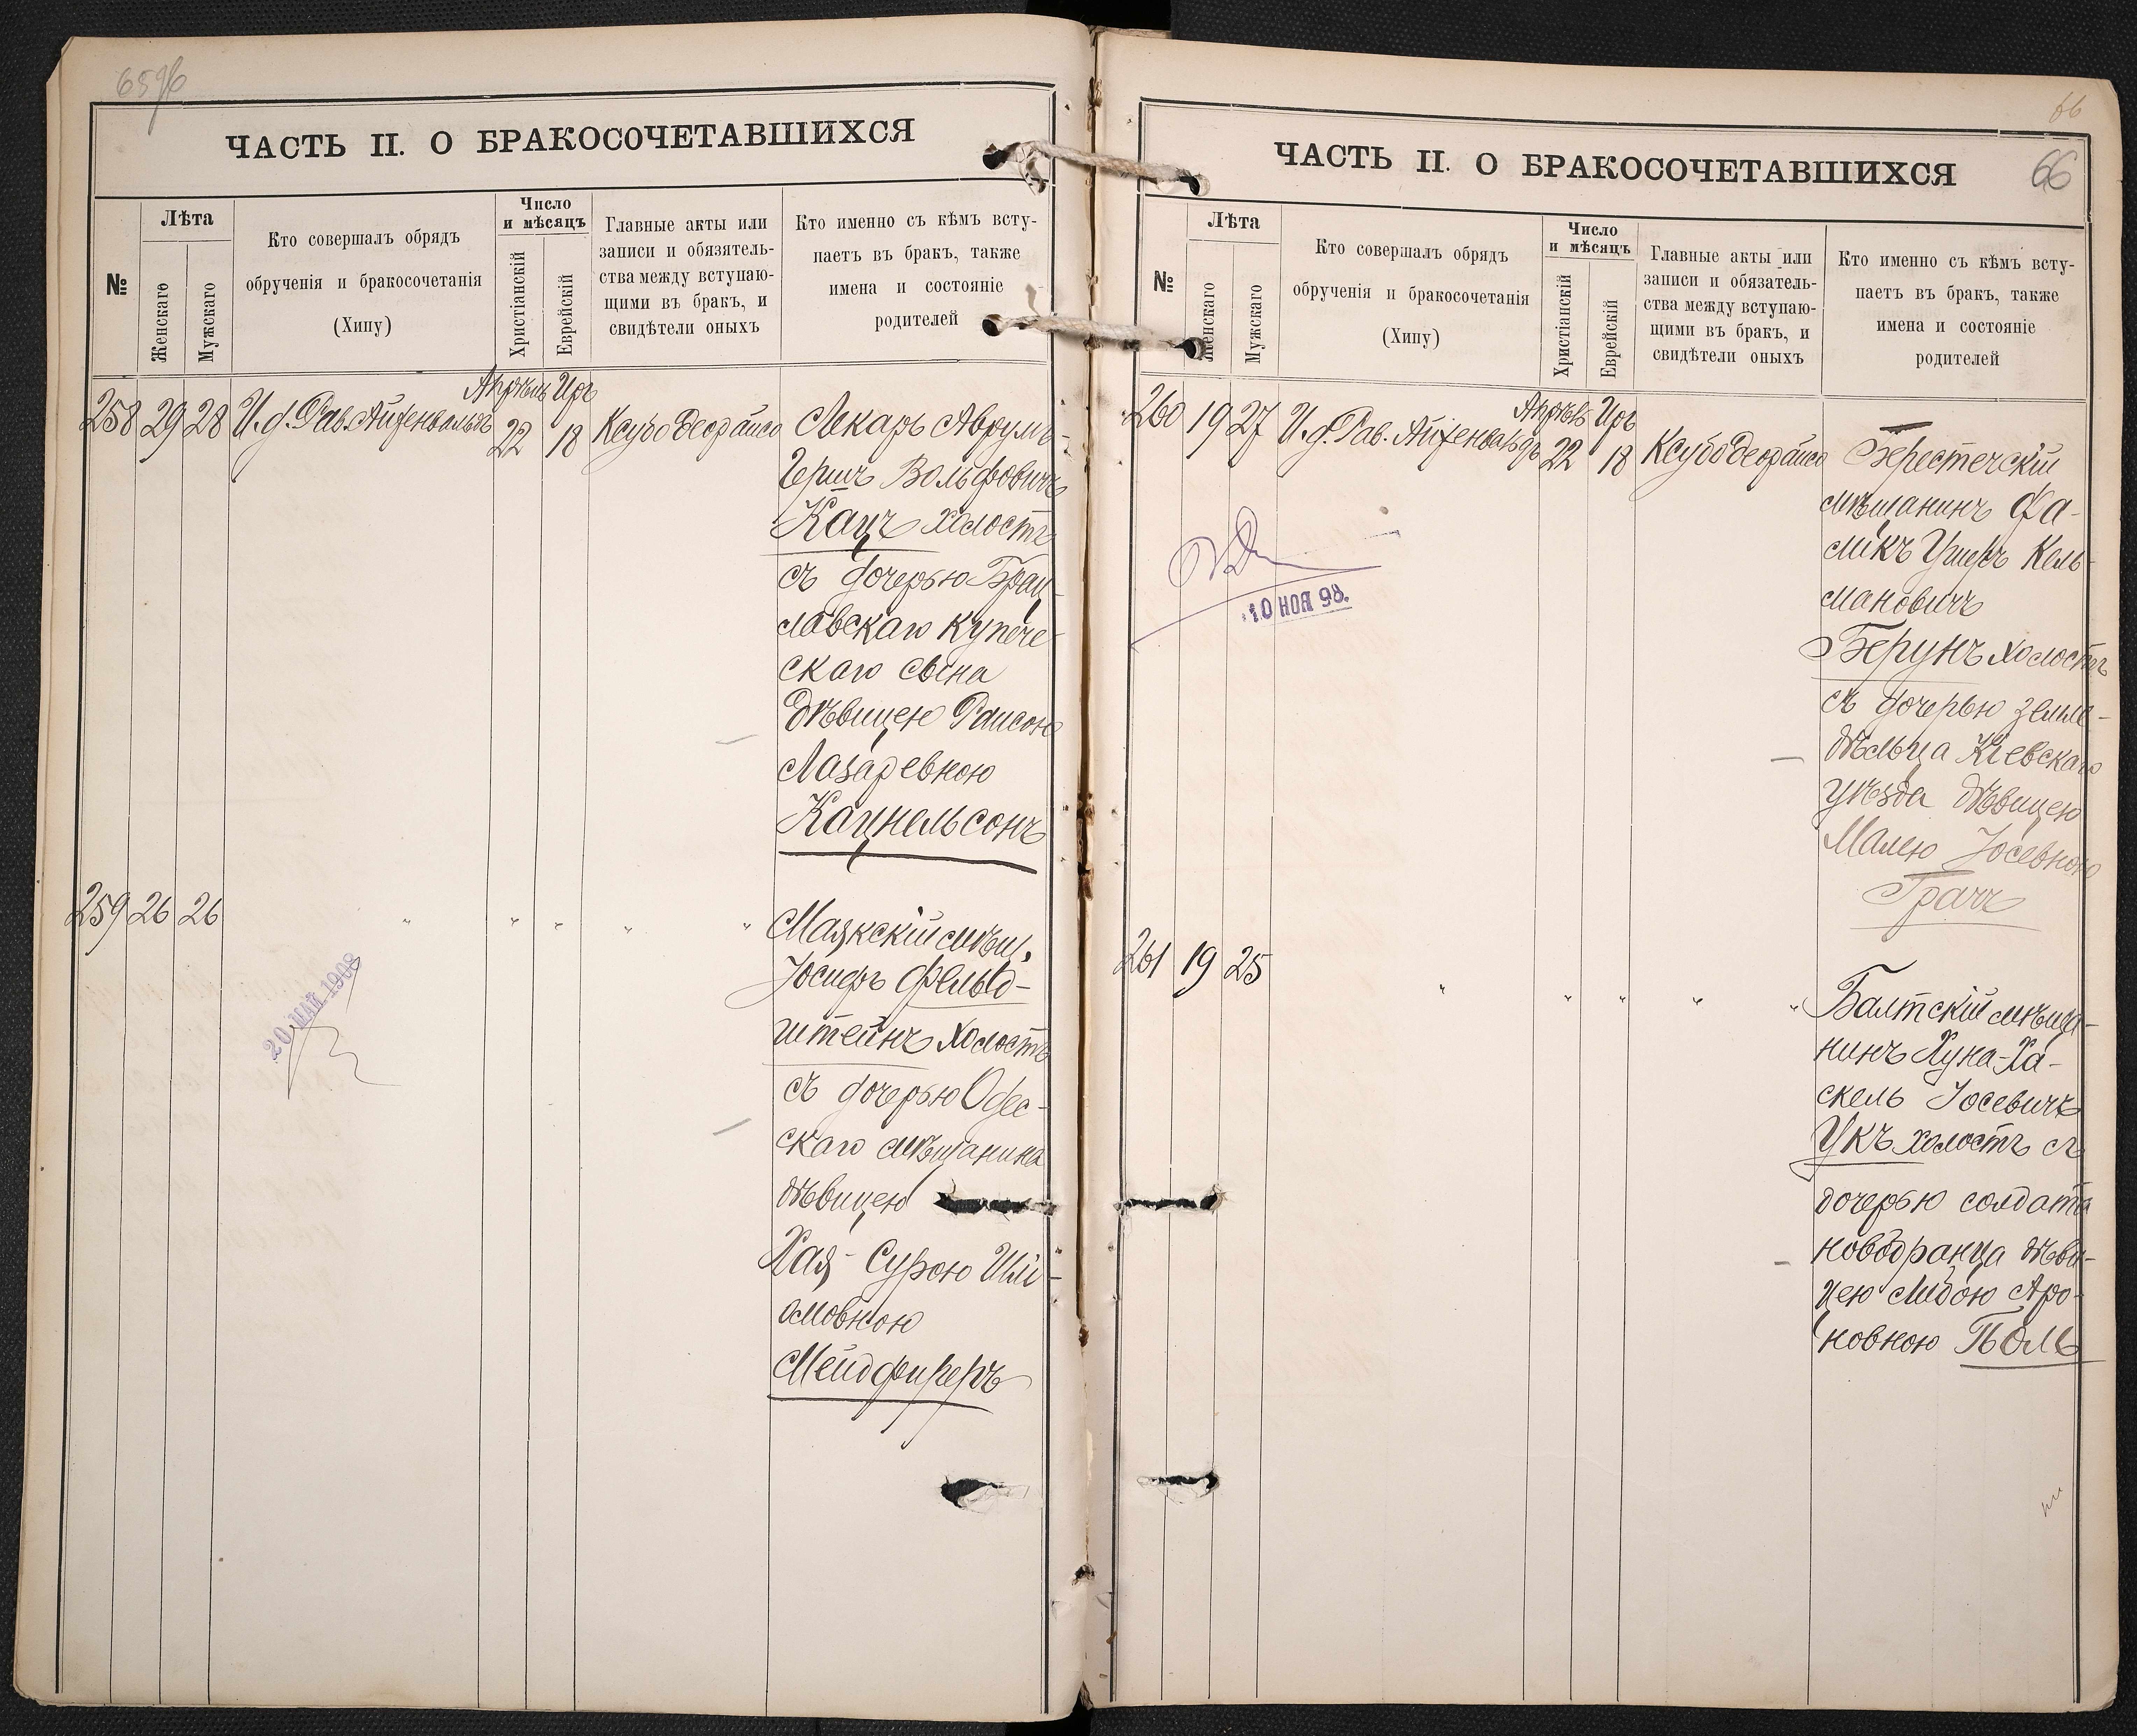 ЧАСТЬ II. О БРАКОСОЧЕТАВШИХСЯ
№
Лѣта
Женскаго
Мужскаго
Кто совершалъ обрядъ
обрученія и бракосочетанія
(Хипу)
Число
и мѣсяцъ
Христіанскій
Еврейскій
Главные акты или
записи и обязятель-
ства между вступаю-
щими въ бракъ, и
свидѣтели оныхъ
Кто именно съ кѣмъ всту-
паетъ въ бракъ, также
имена и состояніе
родителей
Апрѣль Иръ
258 29 28 И.д. Рав. Айзенвальдъ 22 18 Ксубо деорайсо
Лекарь Аврумъ-
Гершъ Вольфовичъ
Кацъ холостъ
съ дочерью Брац-
лавскаго купече-
скаго сына
дѣвицею Раисою
Лазаревною
Кацнельсонъ
259 26 26 " " " " "
Маякскій мѣщ.
Іосифъ Фельд-
штейнъ холостъ
съ дочерью Одес-
скаго мѣщанина
дѣвицею
Хая-Сурою Шлі-
омовною
Мейдфиреръ
20 МАЙ 1908
66
ЧАСТЬ II. О БРАКОСОЧЕТАВШИХСЯ 66
№
Лѣта
Женскаго
Мужскаго
Кто совершалъ обрядъ
обрученія и бракосочетанія
(Хипу)
Число
и мѣсяцъ
Христіанскій
Еврейскій
Главные акты или
записи и обязатель-
ства между вступаю-
щими въ бракъ, и
свидѣтели оныхъ
Кто именно съ кѣмъ всту-
паетъ въ бракъ, также
имена и состояніе
родителей
Апрѣль Иръ
260 19 27 И.д. Рав. Айзенвальдъ 22 18 Ксубо деорайсо
Берестечскій
мѣщанинъ Фа-
ликъ Ушеръ Кель-
мановичъ
Берунъ холостъ
съ дочерью земле-
дѣльца Кіевскаго
уѣзда дѣвицею
Малею Іосевною
Грачъ
10 НОЯ 98.
261 19 25 " " " " "
Балтскій мѣща-
нинъ Хуна-Ха-
скель Іосевичъ
Укъ холостъ съ
дочерью солдата
новобранца дѣви-
цею Лидою Аро-
новною Поль